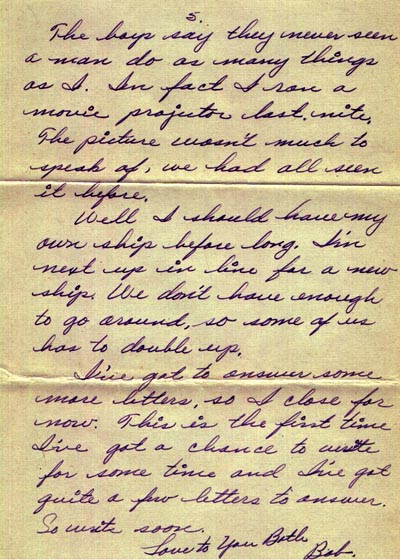 5.
The boys say they never seen
a man do as many things
as I. In fact I ran a
movie projector last nite.
The picture wasn't much to
speak of, we had all seen
it before.
Well I should have my
own ship before long. I'm
next up in line for a new
ship. We don't have enough
to go around, so some of us
has to double up.
I've got to answer some
more letters, so I close for
now. This is the first time
I've got a chance to write
for some time and I've got
quite a few letters to answer.
So write soon.
Love to You Both
Bob.